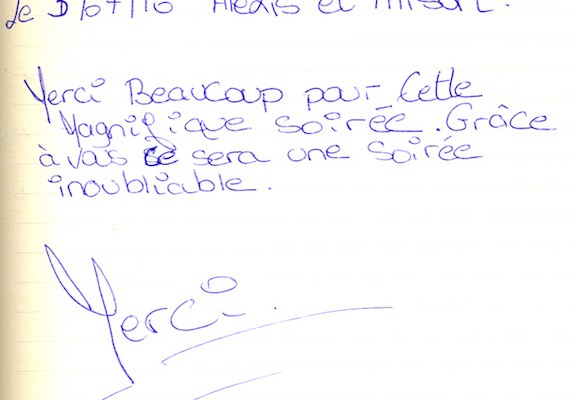 Le
Merci Beaucoup pour Cette
Magnifique soirée. Grâce
à vous ce sera une soirée
inoubliable.
Merci